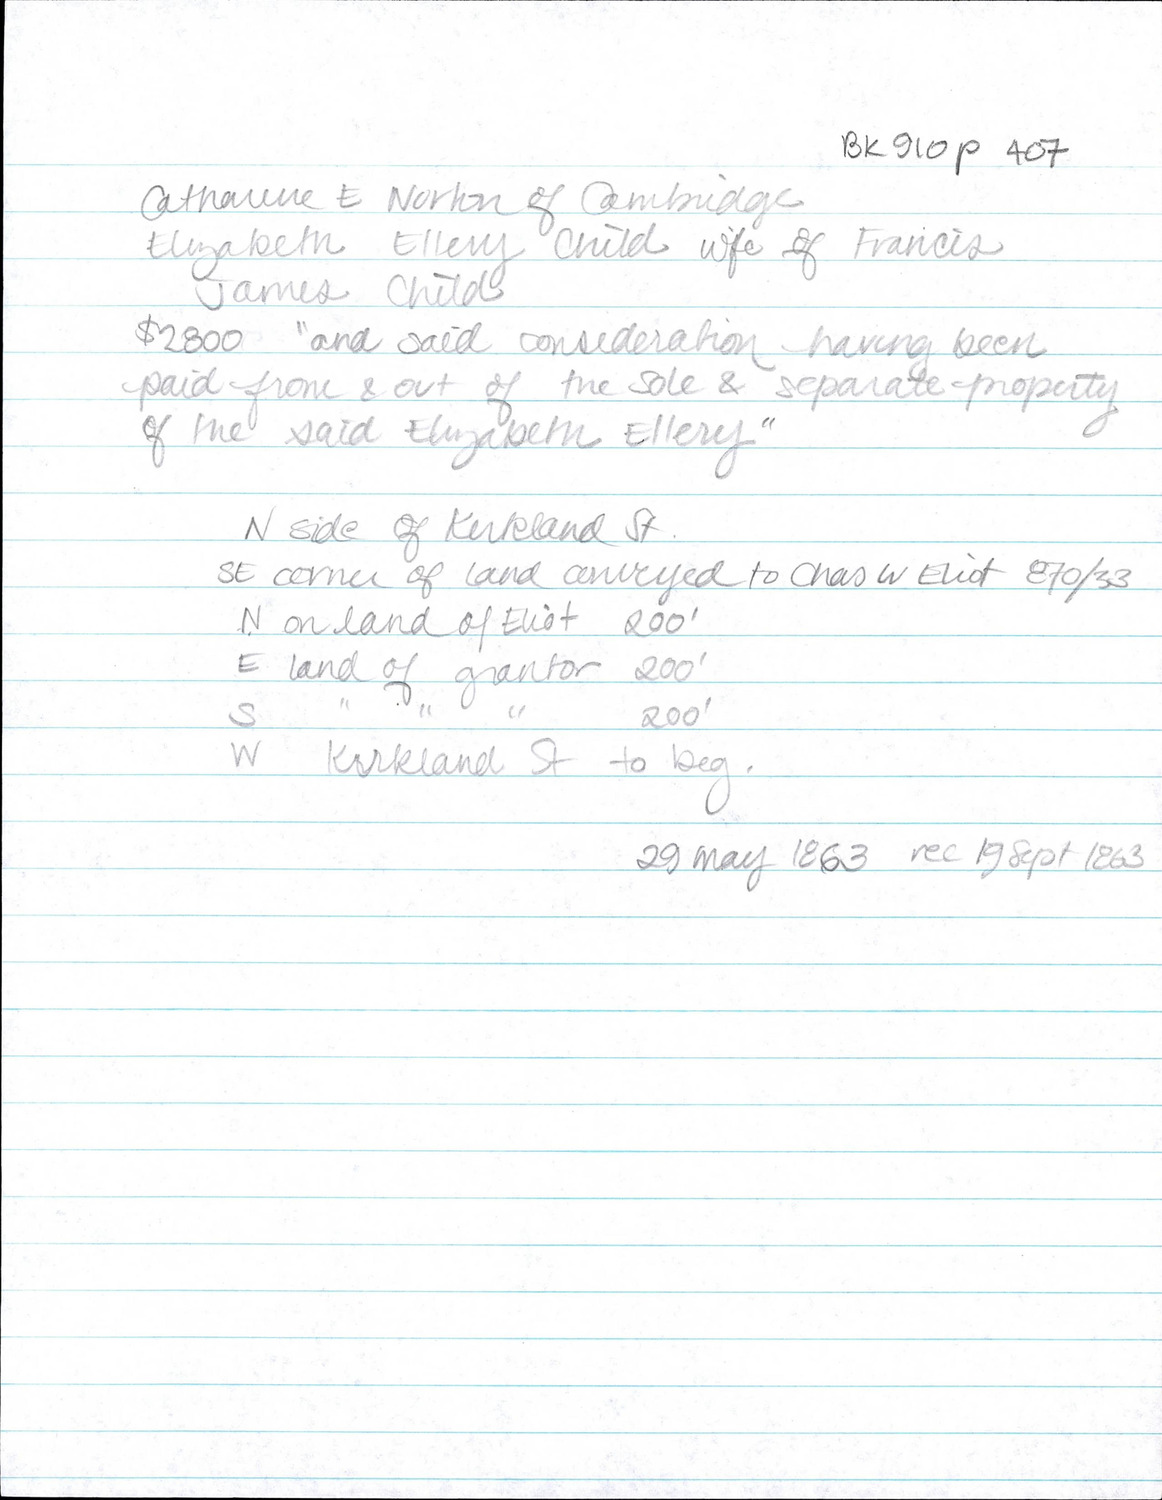 BK 910 p 407
Catharine E Norton of Cambridge
Elizabeth Ellery Child wife of Francis
James Child
$2800 "and said consideration having been
paid from & out of the sole & separate property
of the said Elizabeth Ellery"
N side of Kirkland St.
SE corner of land conveyed to Chas W Eliot 870/33
N on land of Eliot 200'
E land of grantor 200'
S " " " 200'
W Kirkland St to beg.
29 May 1863 rec 19 Sept 1863